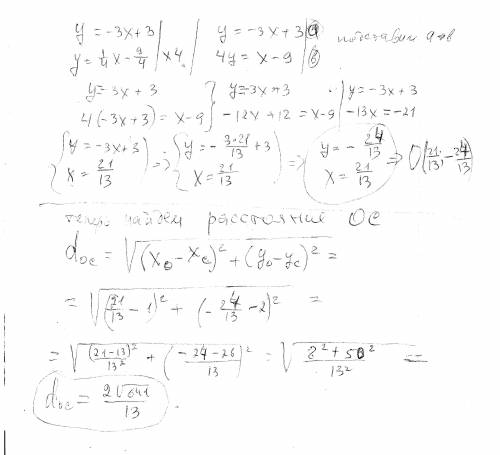 y = -3x + 3 | y = -3x + 3 (a)
y = 1/4 x - 9/4 | x4 | 4y = x - 9 (б) подставим a→в
y = -3x + 3 { y = -3x + 3 | y = -3x + 3
4(-3x + 3) = x - 9 { -12x + 12 = x - 9 | -13x = -21
{ y = -3x + 3 => { y = -3·21/13 + 3 => y = -24/13 => O(21/13, -24/13)
{ x = 21/13 { x = 21/13 x = 21/13
теперь найдем расстояние OC
d_oc = √((x_o - x_c)² + (y_o - y_c)²) =
= √((21/13 - 1)² + (-24/13 - 2)²) =
= √((21-13)²/13² + (-24-26/13)²) = √(8² + 50²/13²) =
d_oc = 2√641/13